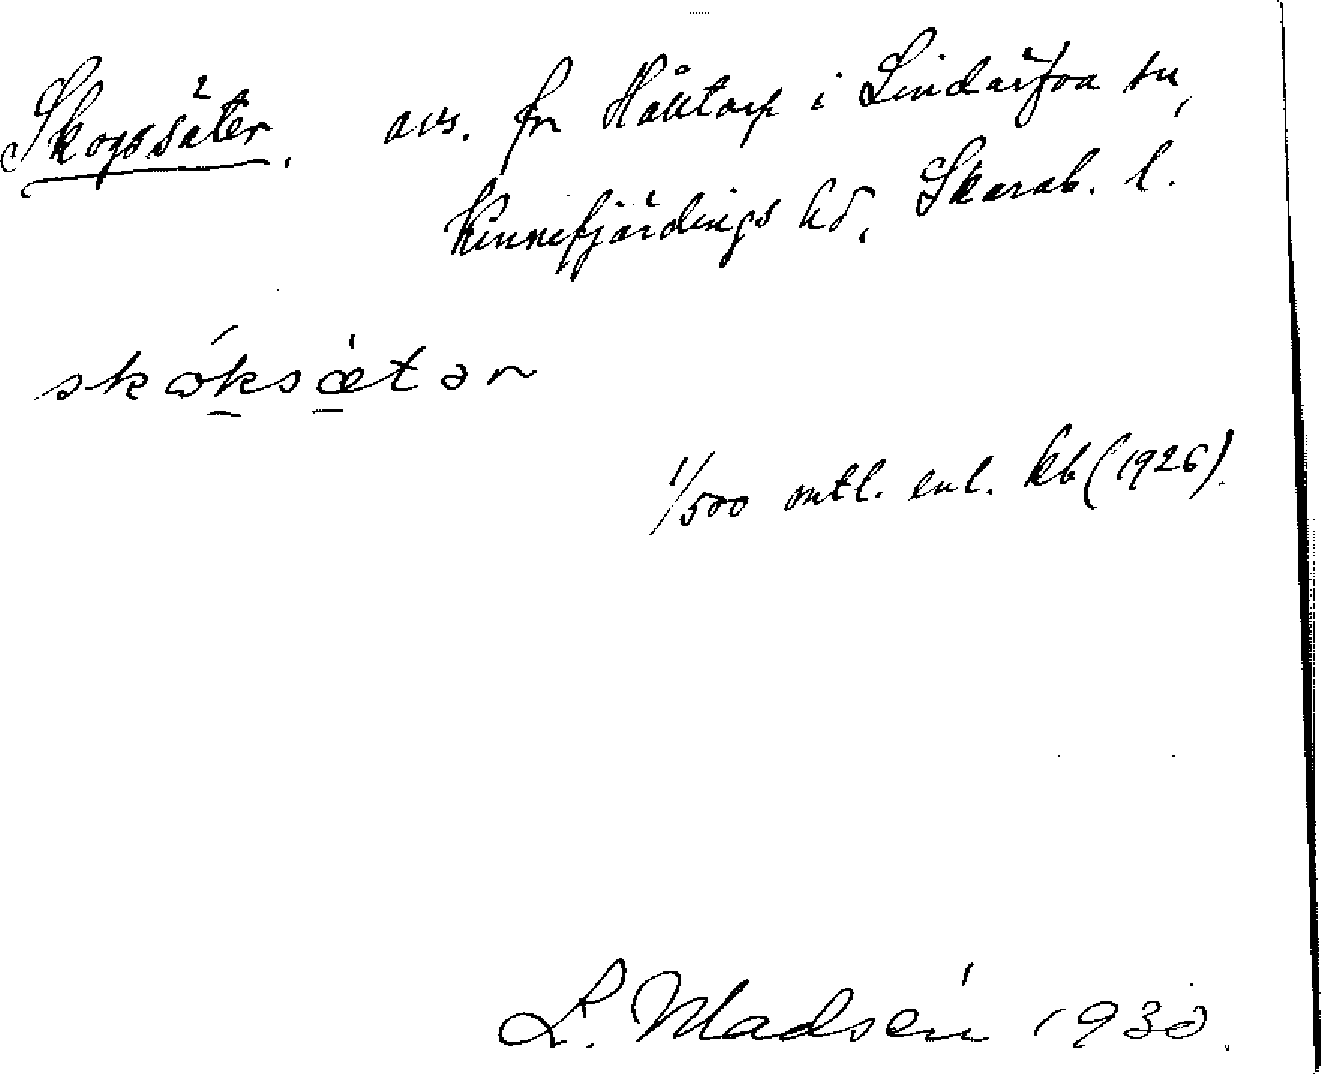 Skogssäter. avs. fr Håltorp i Lindärfva sn,
Kinnefjärdings hd, Skarab. l.
skɷ́ksæ̀tər
1/500 mtl. enl. kb (1926).
L. Madsén 1930.